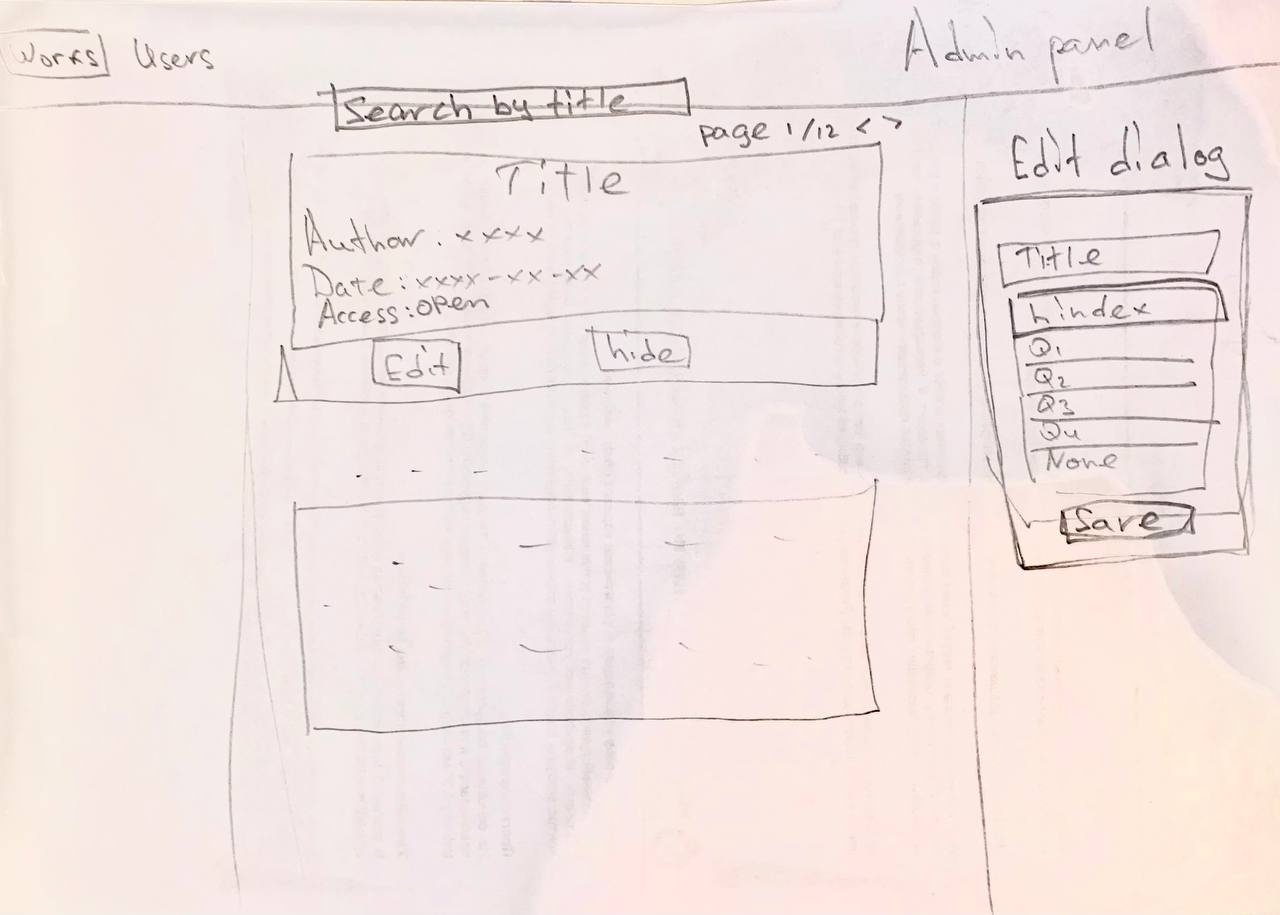 Works Users
Admin panel
Search by title
page 1/12 < >
Title
Author: xxxx
Date: xxxx-xx-xx
Access: open
Edit hide
Edit dialog
Title
hindex
Q1
Q2
Q3
Q4
None
Save